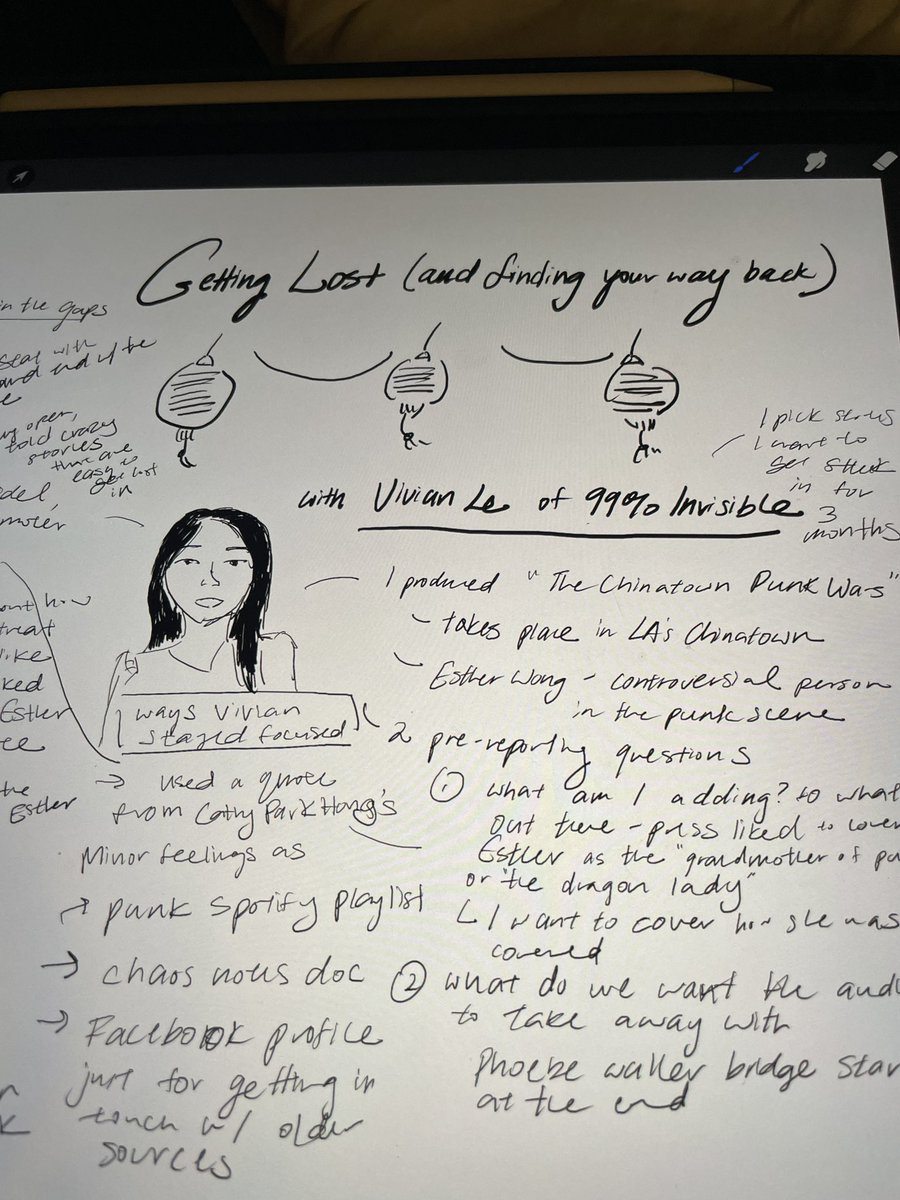 Getting Lost (and finding your way back)
in the gaps
with
and end w/ the
open,
told crazy
stories
that are
easy to
get lost
in
I pick stories
I want to
get stuck
in for
3
months
with Vivian Le of 99% Invisible
I produced "The Chinatown Punk Wars"
takes place in LA's Chinatown
Esther Wong - controversial person
in the punk scene
how
treat
like
Esther
the
Esther
ways Vivian
stayed focused
→ used a quote
from Cathy Park Hong's
Minor feelings as
→ punk spotify playlist
→ chaos notes doc
→ Facebook profile
just for getting in
touch w/ older
sources
2 pre-reporting questions
① what am I adding? to what
out there - press liked to cover
Esther as the "grandmother of pu
or "the dragon lady"
I want to cover how she was
covered
② what do we want the audi
to take away with
Phoebe waller bridge star
at the end